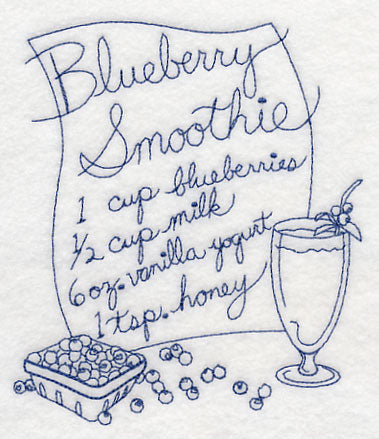 Blueberry
Smoothie
1 cup blueberries
1/2 cup milk
6 oz. vanilla yogurt
1 tsp. honey